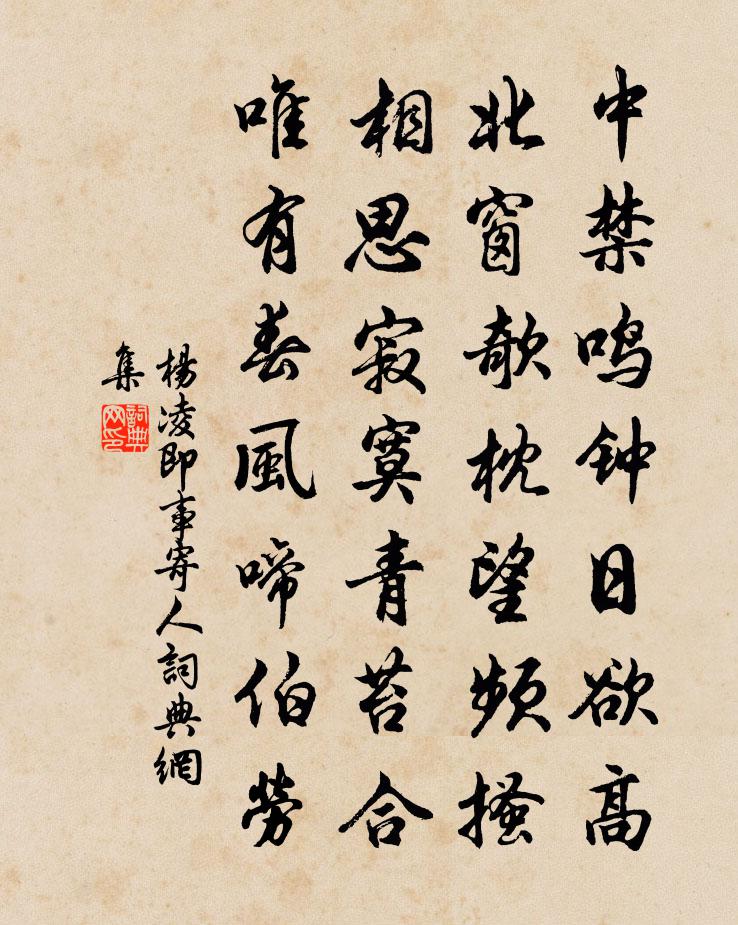 中禁鸣钟日欲高
北窗欹枕望频搔
相思寂寞青苔合
唯有春風啼伯勞
楊凌即事寄人詞典網
集
詞典
网印